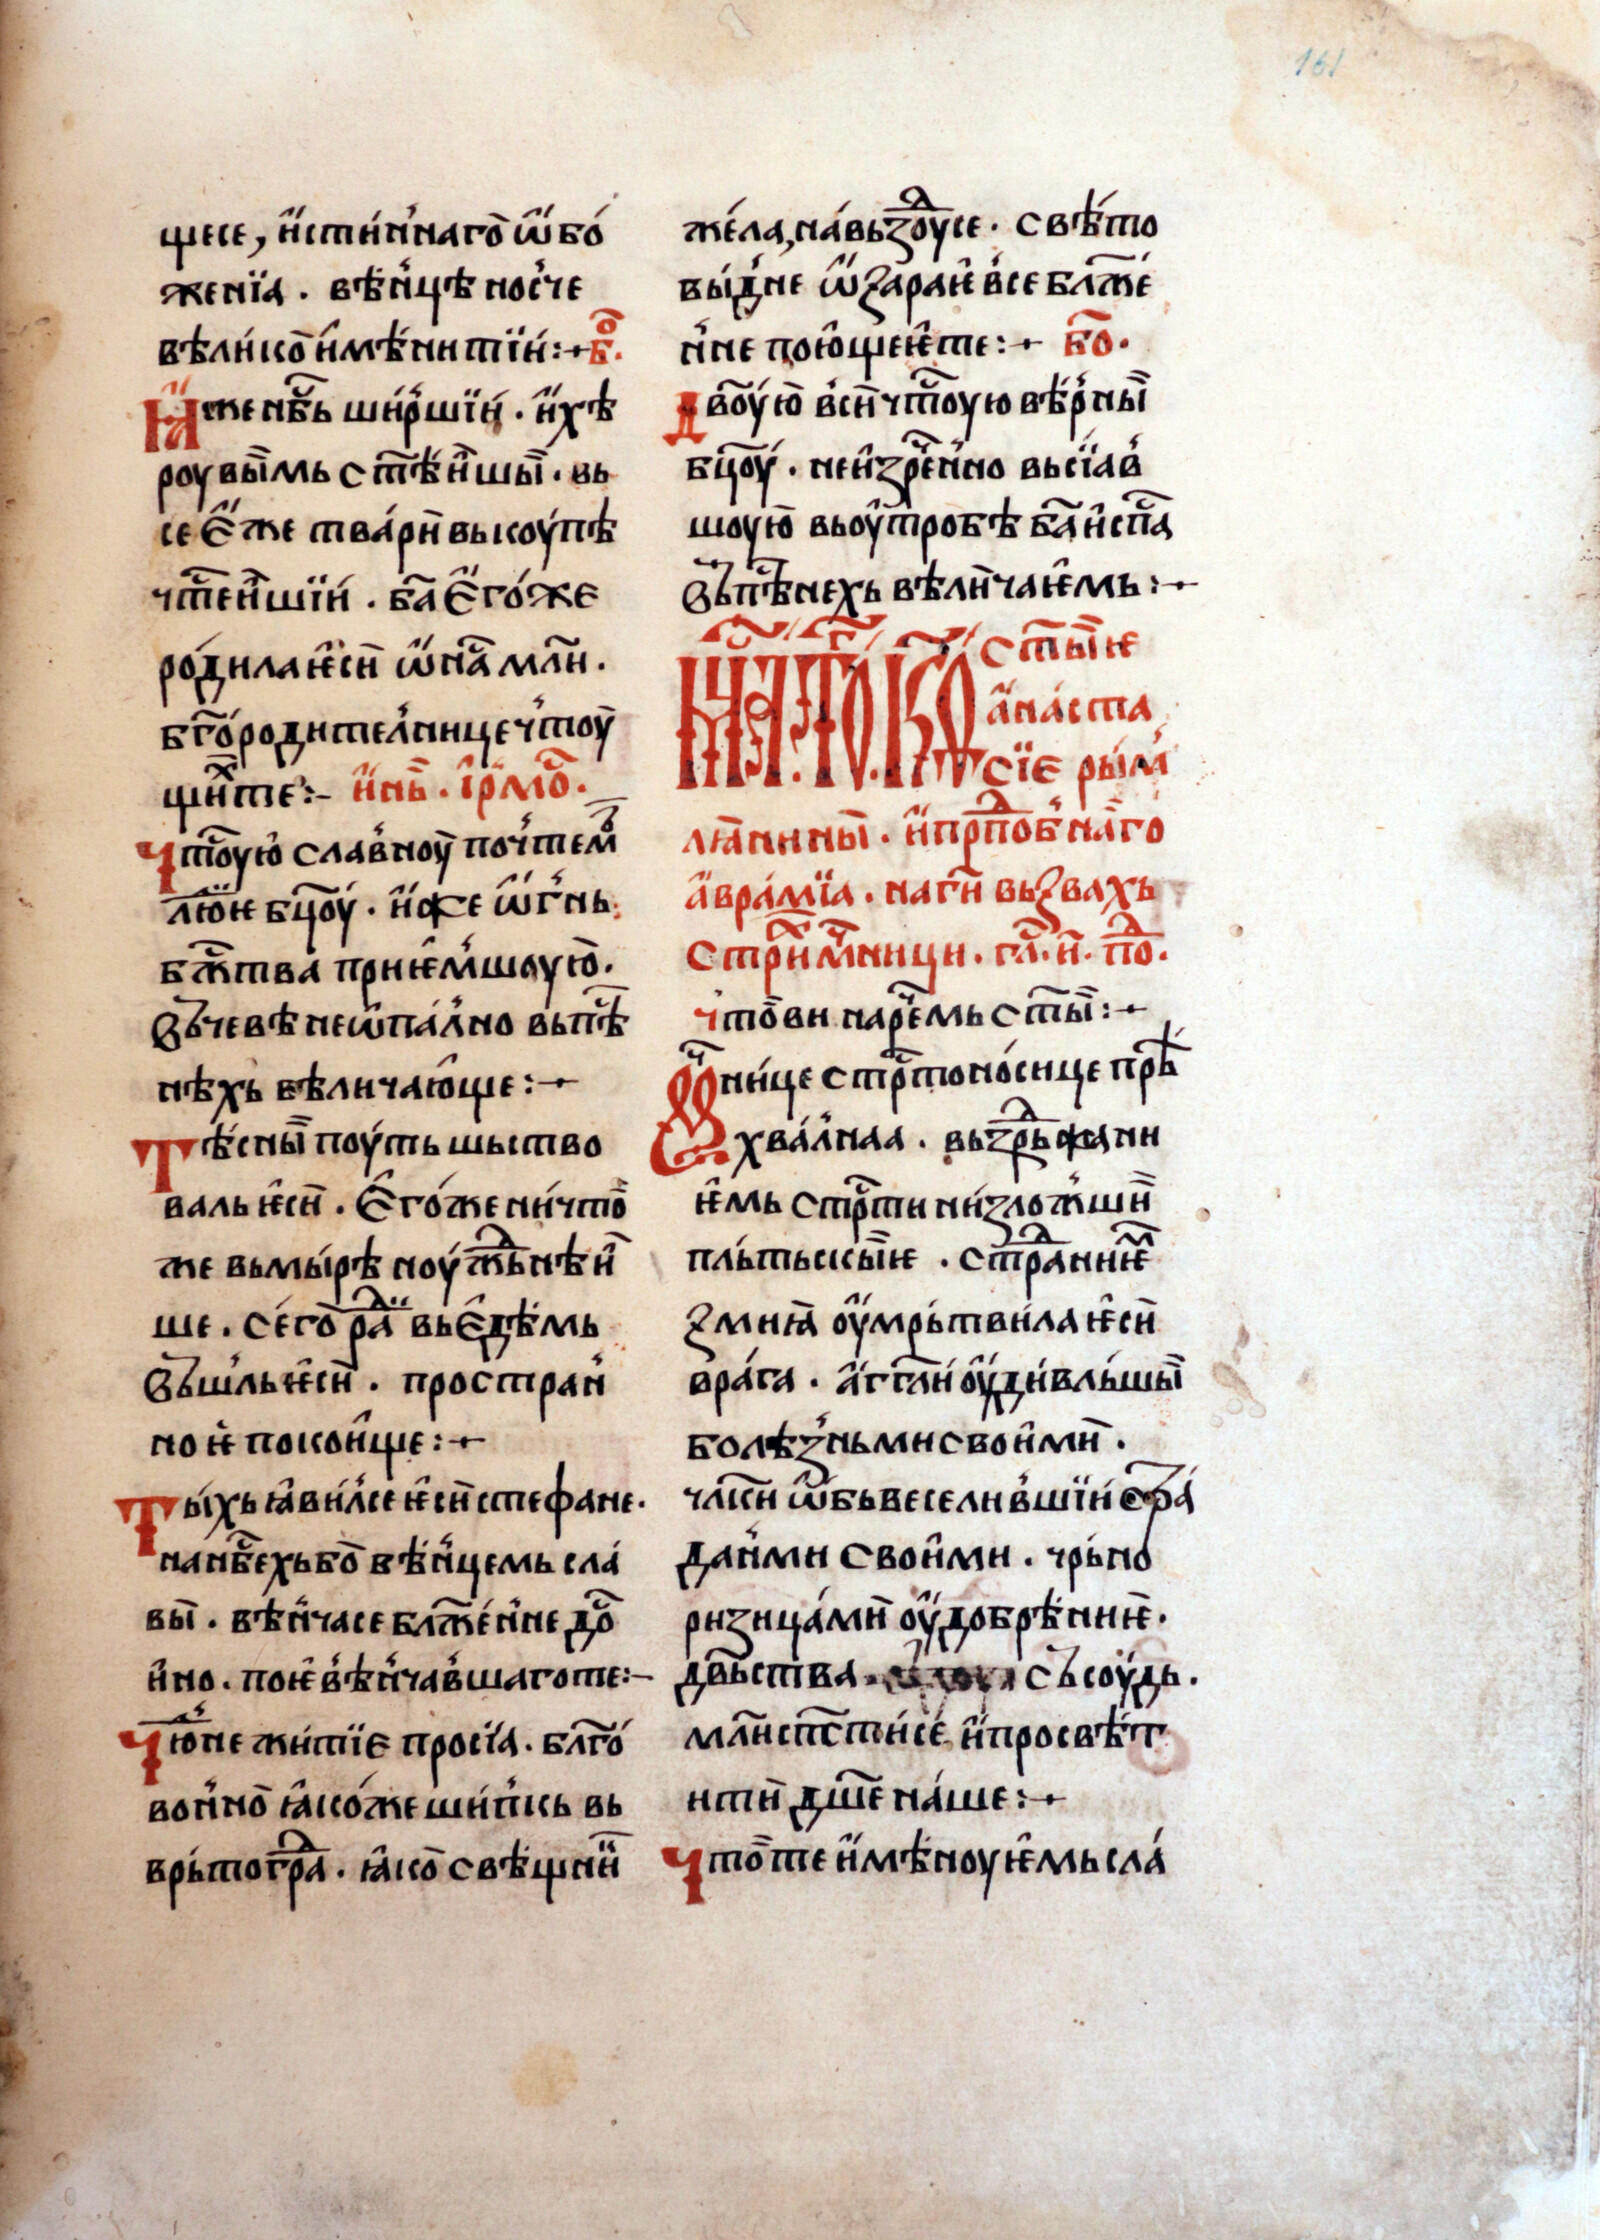 161
щесе, и҆сти́н᾽наго ѿ бо́
женїа . вѣн᾽це нос᾽че
вѣли́ко и҆мѣни́тїи :· б҃ѻ.
И҆же нб҃сь ши́р᾽шїи . и҆ хѣ
роувы̏мь ст҃ѣ́и҆шы̏ . вь
се є҆же тва́ри высоу́пѣ
чт҃еи҆шїи . ба҃ є҆го́же
роди́ла ѥ҆си ѡ҆ на́с мл҃и .
бг҃оро́дителнице чт᾽оу
щи́х те :– и҆нь . і҆рмо́с .
Чт҃оую сла́в᾽ноу поч᾽тем
лю́дїе бц҃оу . и҆же ѡ҆г᾽нь
бж҃тва прие҆м᾽шоую .
въ чевѣ неѡпа́л᾽но вь пѣс
нѣхь вѣлича́юще :·
Тѣсны̏ поу́ть шьство
валь ѥ҆си . Є҆го́же ничто
же вь мы́рѣ ноу́ждьнѣи҆
ше . се́го ра́ди вь є҆дѣмь
въшль ѥ҆си . простран᾽
но ѥ҆ покои҆ще :·
Ты́хь ꙗ҆ви́л᾽се ѥ҆си стефане .
на нб҃сехь бо вѣн᾽цемь сла́
вы̏ . вѣн᾽часе блаже́н᾽не дос
и҆но . поѥ҆ вѣн᾽чав᾽шаго те :–
Чю́дне жи́тїе просїа́ . бл҃го́
вон᾽но ꙗ҆ко́же ши́п᾽кь вь
врь́тогра́д . ꙗ҆ко свѣщни́и
же́ла, на́ вьзо́дусе . свѣ́то
ви́д᾽не ѡ҆ заране все блаже́
н᾽не пою́щеѥ҆ те :· бо҃.
Дв҃оую всечт҃оую вѣр᾽ны̏
бц҃оу́ . неи҆зрече́н᾽но вьсїав᾽
шоую вьоу҆тробѣ ба҃ и҆ спс҃а
въ пѣ́снехь вѣлича́ѥмь :·
ст҃ы́ѥ
а҆на́ста
сїе ры́м
лꙗ́нины̏ . и҆ прпдо́б᾽наго
а҆вра́мїа . на г҃и вьзвахь
стх҃ри мч҃ници . гла́с . и҃ . под .
что ви наре́чемь ст҃ы̏ :·
Мч҃нице стртоно́сице прѣ
хва́л᾽наа . вьздрьжани
ѥ҆мь стра́сти ни́зложьши
плъ́тьскы̏ѥ . стра́данїем
змиꙗ оу҆мрь́тви́ла ѥ҆си
вра́га . а҆гг҃ли оу҆ди́влъ́шы̏
болѣзньми свои҆ми .
чл҃ки ѡ҆бьвесели́в᾽шїи стра́
дан᾽ми свои҆ми . чрь́но
ризица́ми оу҆добрѣ́ниѥ .
дв҃ьства съсоу́дь .
мл҃и спсти́ се́ и҆ просвѣ́т
ити дш҃е на́ше :·
Что́ те и҆мѣноуѥ҆мь сла́